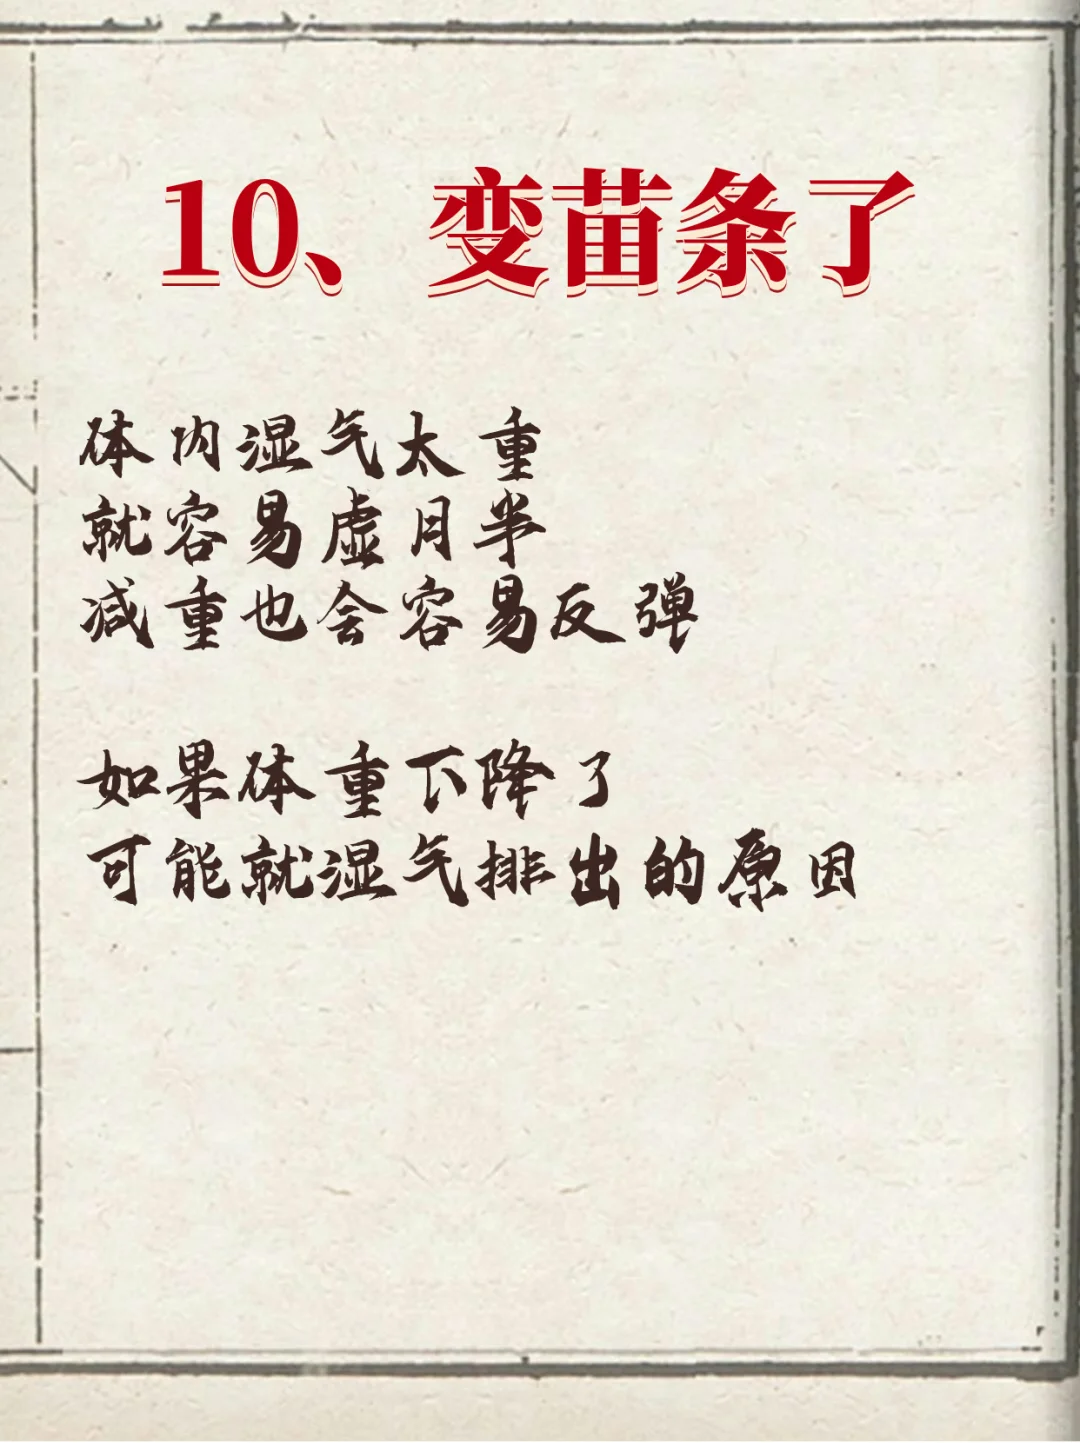 10、变苗条了
体内湿气太重
就容易虚月半
减重也会容易反弹
如果体重下降了
可能就湿气排出的原因